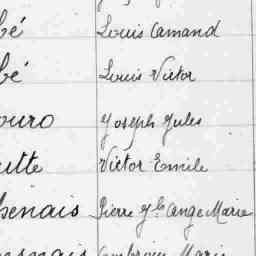 bé Louis Amand
bé Louis Victor
ouro Joseph Jules
utte Victor Emile
henais Pierre Ange Marie
Ambroise Marie